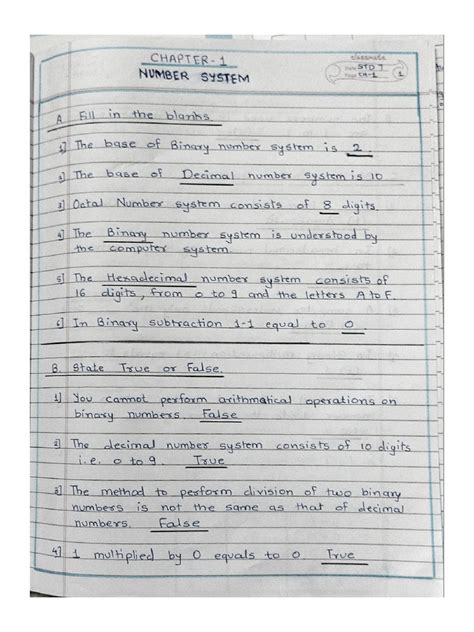 CHAPTER-1
NUMBER SYSTEM
classmate
Date STD 7
Page CH-1 1
A. Fill in the blanks
1] The base of Binary number system is 2.
2] The base of Decimal number system is 10
3] Octal Number system consists of 8 digits.
4] The Binary number system is understood by
the computer system.
5] The Hexadecimal number system consists of
16 digits, from 0 to 9 and the letters A to F.
6] In Binary subtraction 1-1 equal to 0.
B. State True or False.
1] You cannot perform arithmatical operations on
binary numbers. False
2] The decimal number system consists of 10 digits
i.e. 0 to 9. True
3] The method to perform division of two binary
numbers is not the same as that of decimal
numbers. False
4] 1 multiplied by 0 equals to 0. True